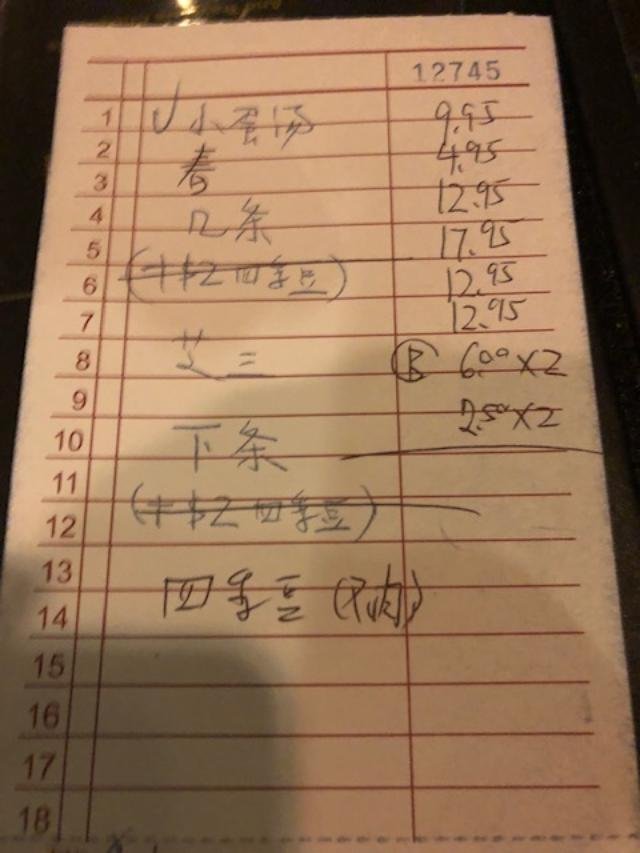 12745
1 小蛋汤 9.95
2 春 4.95
3 12.95
4 几条 17.95
5
6 (+$2四季豆) 12.95
7 12.95
8 艾三 B 6.00 x 2
9 2.50 x 2
10 下条
11
12 (+$2四季豆)
13
14 四季豆 (不肉)
15
16
17
18